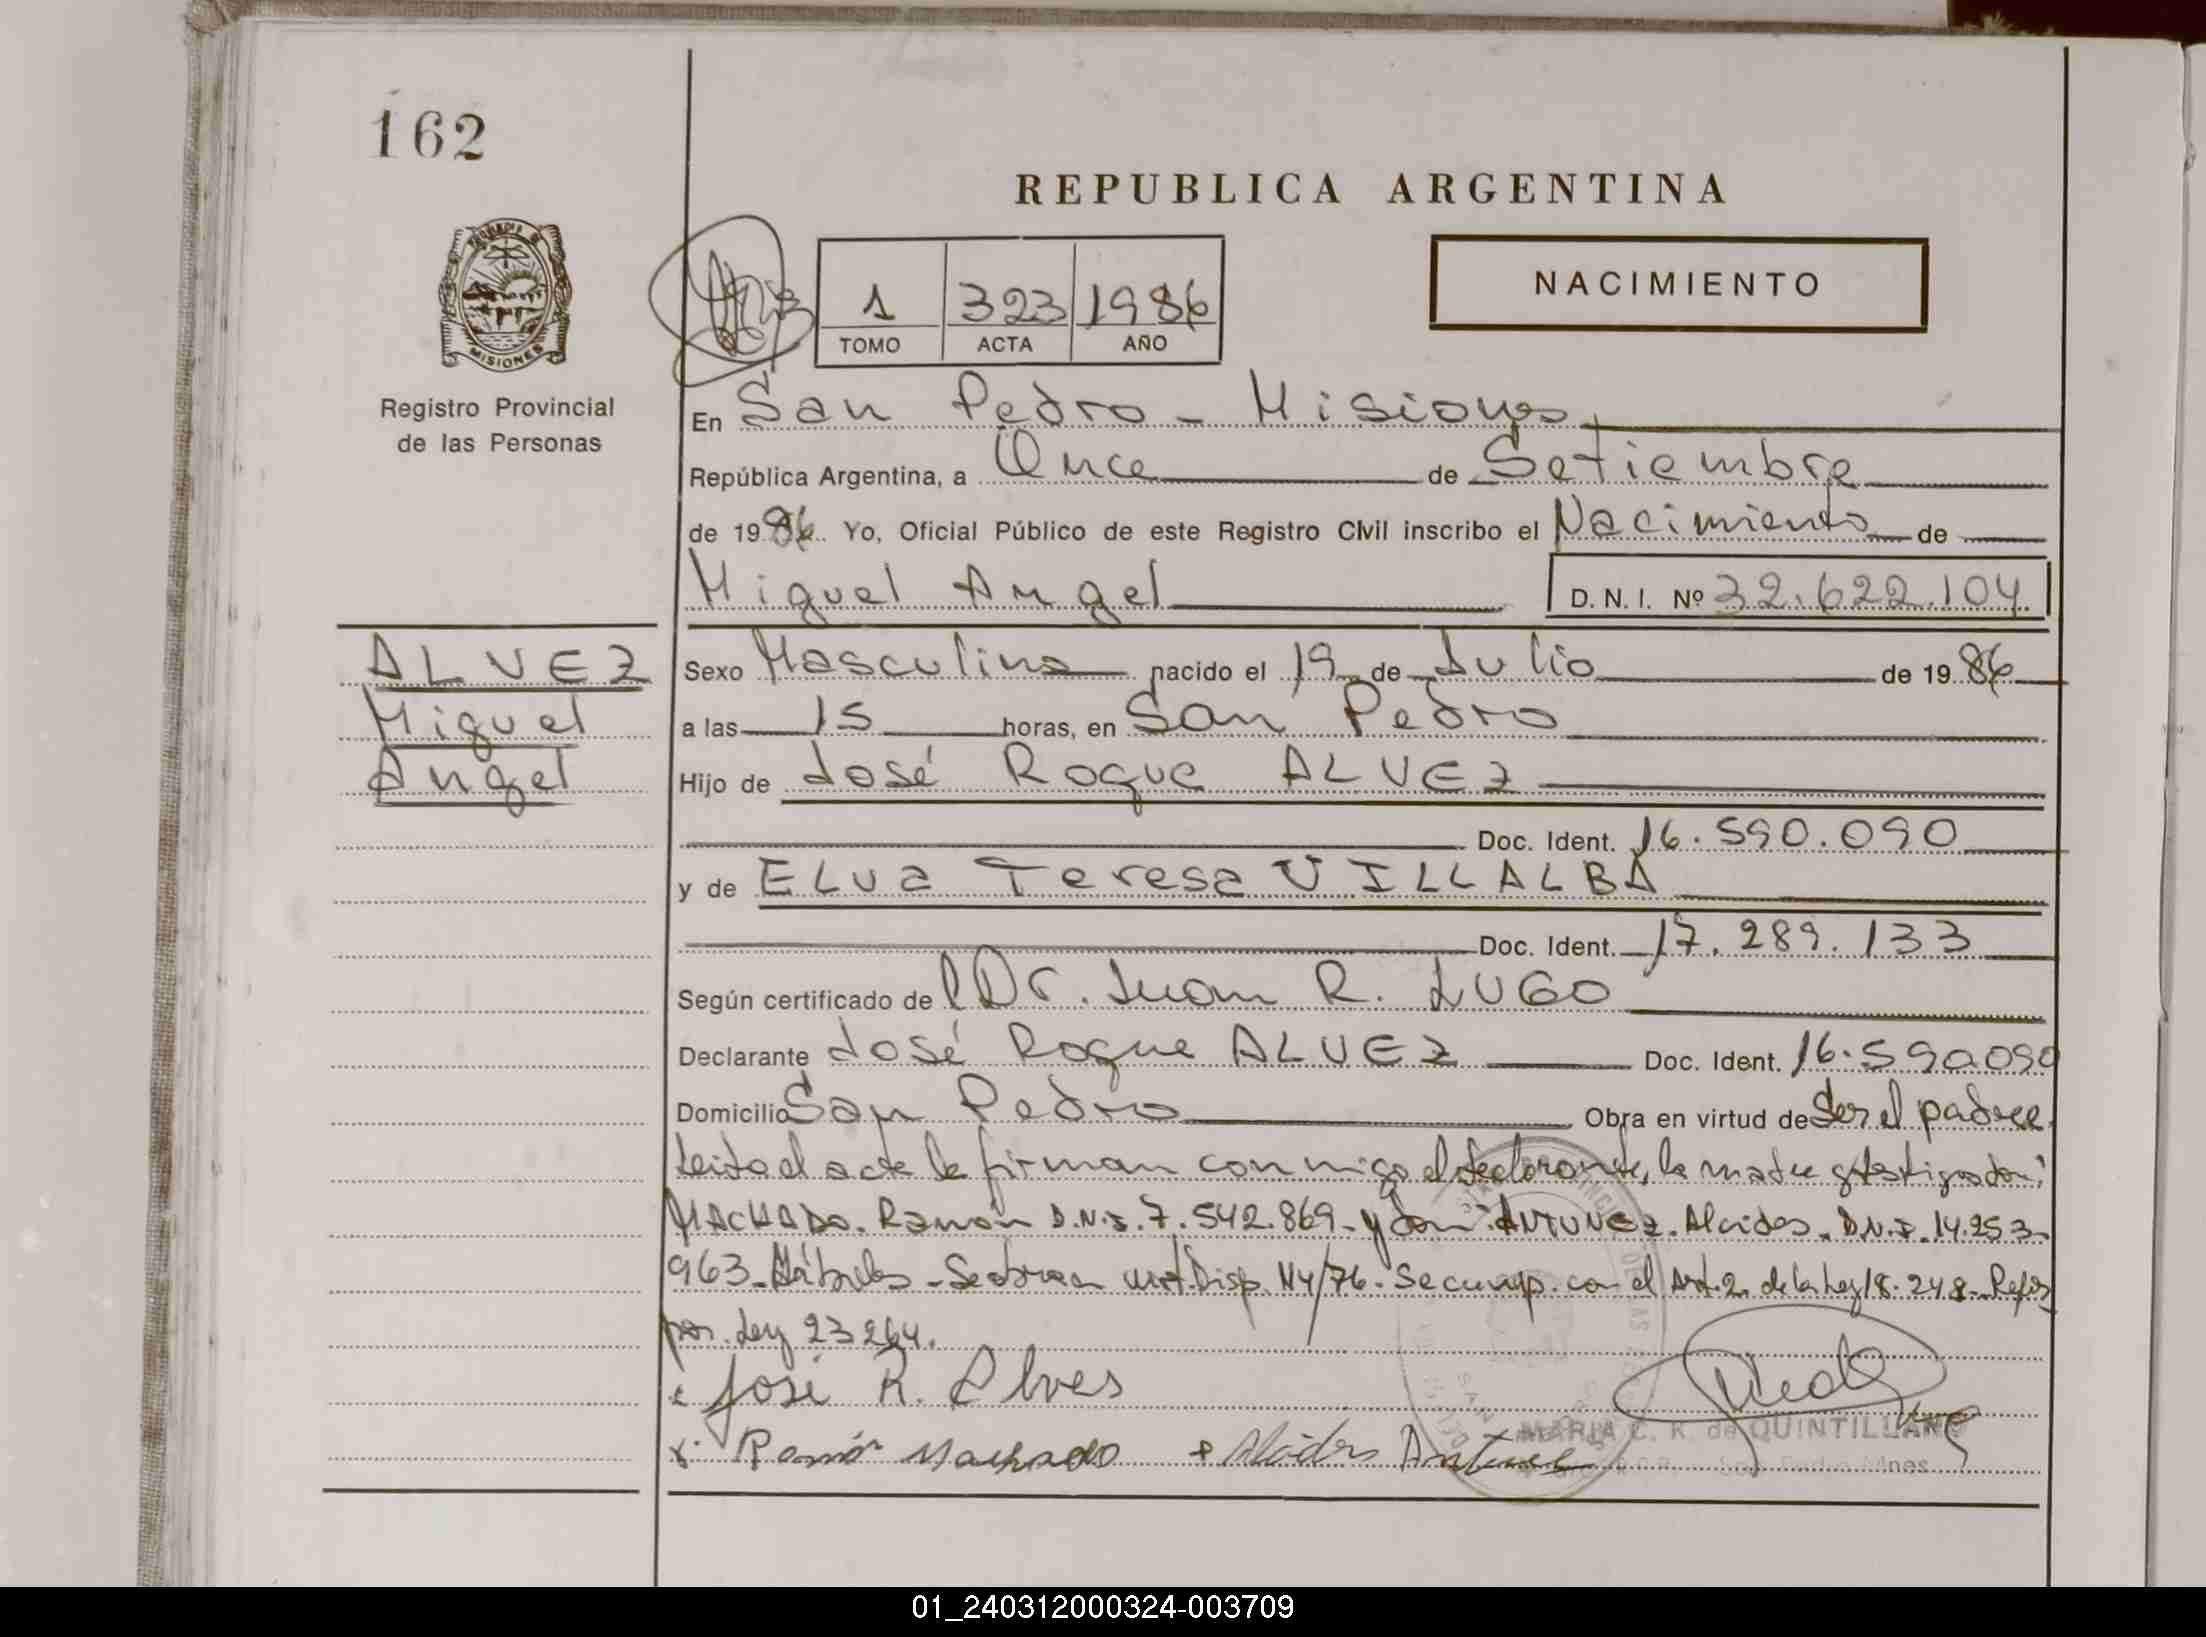 162
REPUBLICA ARGENTINA
NACIMIENTO
1 323 1986
TOMO ACTA AÑO
MISIONES
Registro Provincial
de las Personas
En San Pedro - Misiones
República Argentina, a Once de Setiembre
de 1986. Yo, Oficial Público de este Registro Civil inscribo el Nacimiento de
Miguel Angel D.N.I. Nº 32.622.104
ALVEZ
Miguel
Angel
Sexo Masculino nacido el 19 de Julio de 1986
a las 15 horas, en San Pedro
Hijo de José Roque ALVEZ
Doc. Ident. 16.590.090
y de ELva Teresa VILLALBA
Doc. Ident. 17.289.133
Según certificado de l Dr. Juan R. LUGO
Declarante José Roque ALVEZ Doc. Ident. 16.590090
Domicilio San Pedro Obra en virtud de Ser el padre
Leida el acta la firman conmigo el declarante, la madre y testigos don:
MACHADO. Ramón D.N.I. 7.542.869 - y don: ANTUNEZ. Alcides. D.N.I. 14.253
963 - Hábiles - Se Disp. 114/76 - Se cump. con el Art. 2 de la Ley 18.248 - Refor
por Ley 23264.
José R. Alves
Ramón Machado Alcides Antunez
MARIA C. R. de QUINTILLAN
01_240312000324-003709